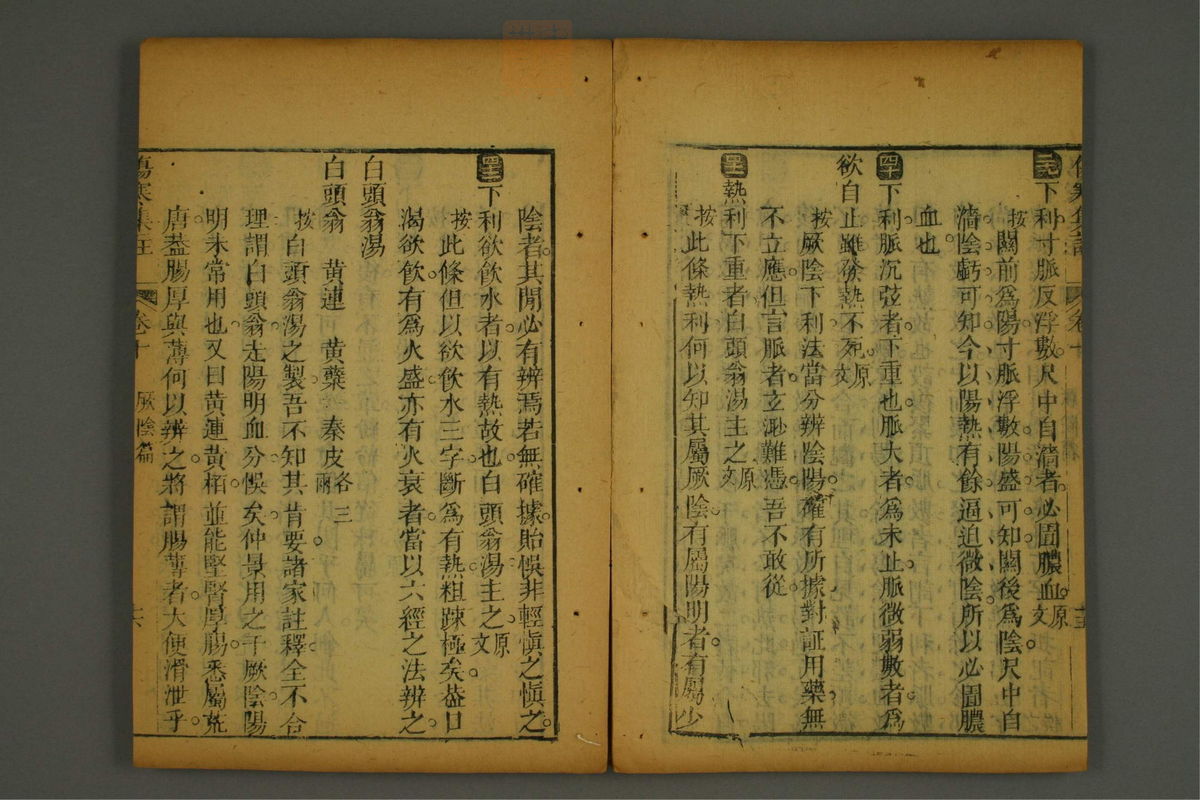 傷寒集註
卷十
三九 下利寸脈反浮數尺中自濇者必圊膿血原文
按關前爲陽寸脈浮數陽盛可知關後爲陰尺中自
濇陰虧可知今以陽熱有餘逼迫微陰所以必圊膿
血也
四十 下利脈沉弦者下重也脈大者爲未止脈微弱數者爲
欲自止雖發熱不死原文
按厥陰下利法當分辨陰陽確有所據對証用藥無
不立應但言脈者立論難憑吾不敢從
四一 熱利下重者白頭翁湯主之原文
按此條熱利何以知其屬厥陰有屬陽明者有屬少
陰者其間必有辨焉若無確據貽悞非輕愼之愼之
四二 下利欲飲水者以有熱故也白頭翁湯主之原文
按此條但以欲飲水三字斷爲有熱粗踈極矣葢口
渴欲飲有爲火盛亦有火衰者當以六經之法辨之
白頭翁湯
白頭翁 黃連 黃蘗 秦皮各三兩
按白頭翁湯之製吾不知其肯要諸家註釋全不合
理謂白頭翁走陽明血分悞矣仲景用之于厥陰陽
明未常用也又曰黃連黃栢並能堅腎厚腸悉屬荒
唐葢腸厚與薄何以辨之將謂腸薄者大便滑泄乎
傷寒集註 卷十 厥陰篇